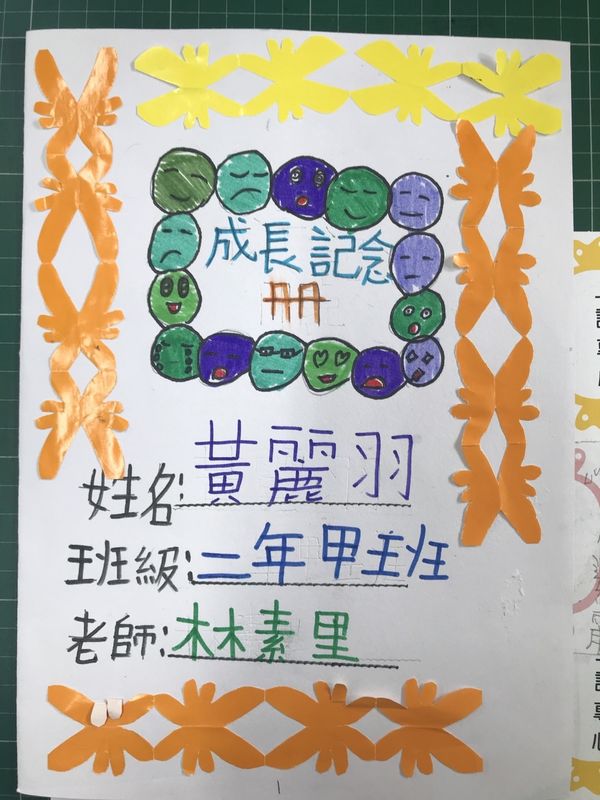 成長記念
冊
姓名:黃麗羽
班級:二年甲班
老師:林素里